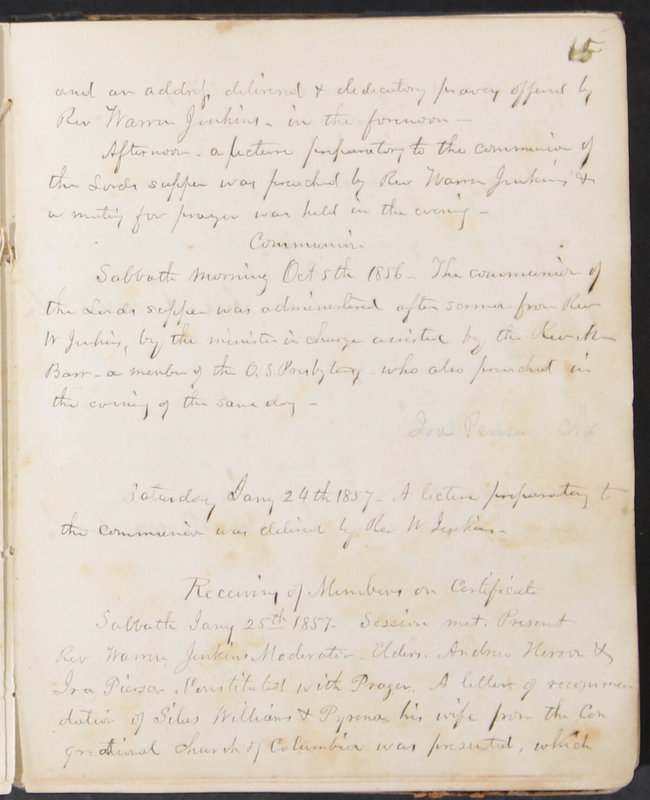 15
and an address delivered & dedicatory prayer offered by
Rev Warren Jenkins - in the forenoon -
Afternoon - a lecture preparatory to the communion of
the Lords supper was preached by Rev Warren Jenkins &
a meeting for prayer was held in the evening -
Communion
Sabbath morning Oct 5th 1856 - The communion of
the Lords supper was administered after sermon from Rev
W Jenkins, by the minister in charge assisted by the Rev Mr
Barr - a member of the O.S. Presbytery - who also preached in
the evening of the same day -
Ira Pierson
Saturday Jany 24th 1857 - A lecture preparatory to
the communion was delivered by Rev W Jenkins -
Receiving of Members on Certificate
Sabbath Jany 25th 1857. Session met. Present
Rev Warren Jenkins Moderator - Elders. Andrew Herron &
Ira Pierson. Constituted with Prayer. A letter of recommen
dation of Silas Williams & Pyrena his wife from the Con
gregational Church of Columbia was presented, which